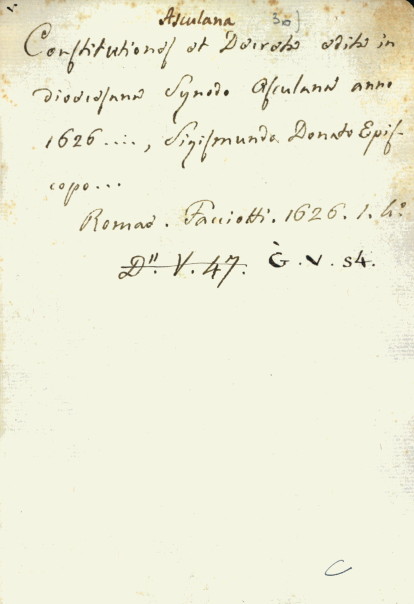 Asculana 30)
Constitutiones et Decreta edita in
diœcesana Synodo Asculana anno
1626...., Sigismundo Donato Epis-
copo...
Romae. Facciotti. 1626. 1. 4º
D". V. 47. G. V. 54.
C